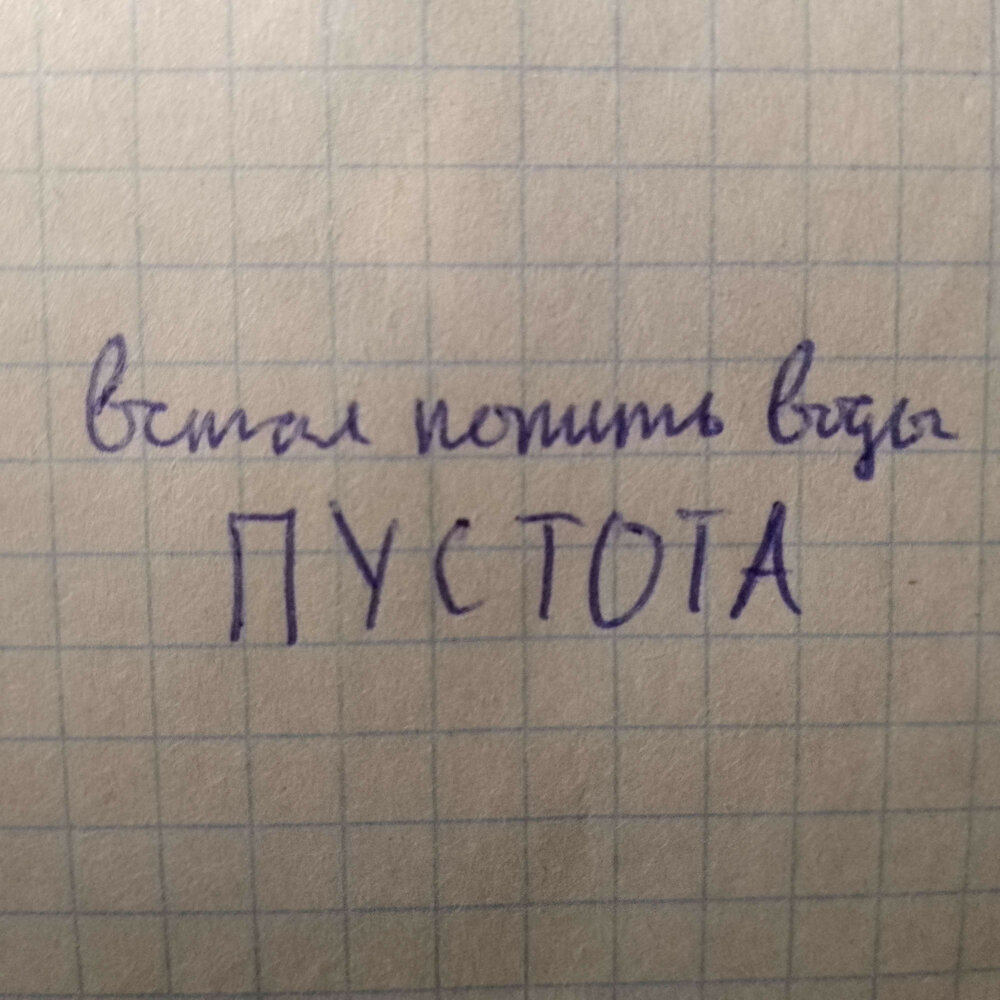 встал попить воды
ПУСТОТА